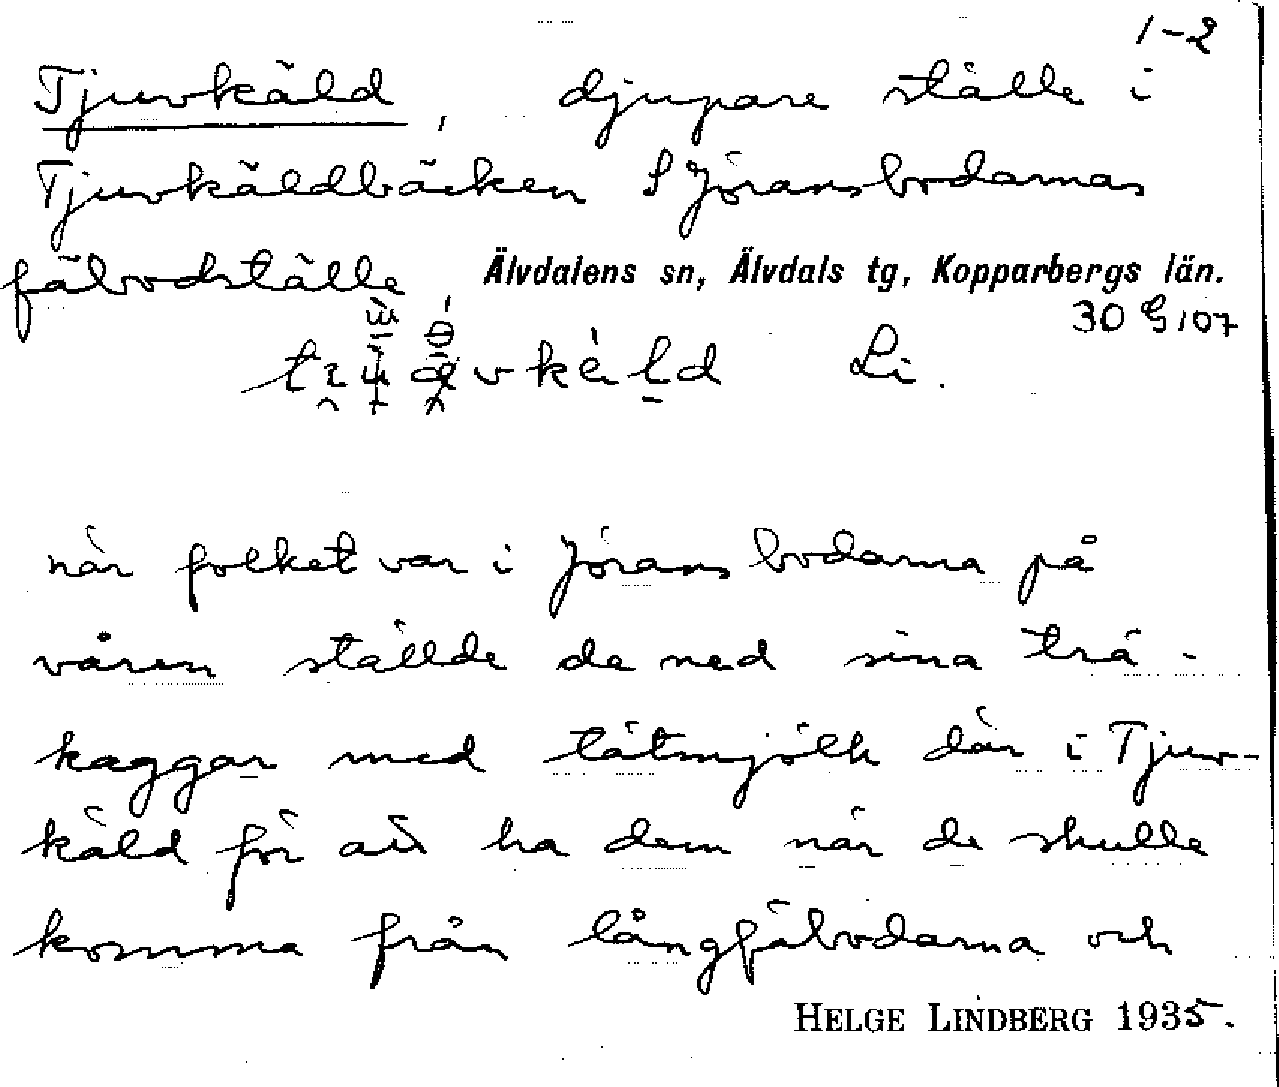 1-2
Tjuvkäld, djupare ställe i
Tjuvkäldbäcken S Jöransbodarnas
fäbodställe Älvdalens sn, Älvdals tg, Kopparbergs län.
30 G 107
Li.
när folket var i Jöransbodarna på
våren ställde de ned sina trä-
kaggar med tätmjölk där i Tjuv-
käld för att ha dem när de skulle
komma från långfäbodarna och
HELGE LINDBERG 1935.